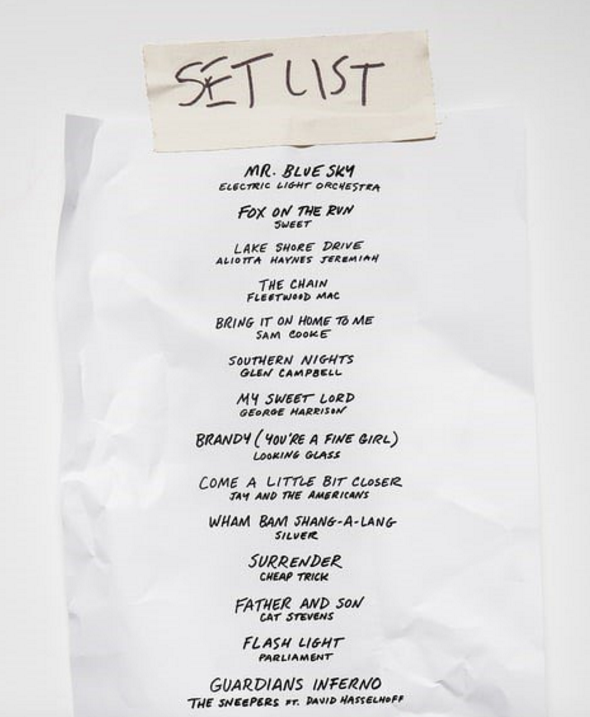 SET LIST
MR. BLUE SKY
ELECTRIC LIGHT ORCHESTRA
FOX ON THE RUN
SWEET
LAKE SHORE DRIVE
ALIOTTA HAYNES JEREMIAH
THE CHAIN
FLEETWOOD MAC
BRING IT ON HOME TO ME
SAM COOKE
SOUTHERN NIGHTS
GLEN CAMPBELL
MY SWEET LORD
GEORGE HARRISON
BRANDY (YOU'RE A FINE GIRL)
LOOKING GLASS
COME A LITTLE BIT CLOSER
JAY AND THE AMERICANS
WHAM BAM SHANG-A-LANG
SILVER
SURRENDER
CHEAP TRICK
FATHER AND SON
CAT STEVENS
FLASH LIGHT
PARLIAMENT
GUARDIANS INFERNO
THE SNEEPERS FT. DAVID HASSELHOFF